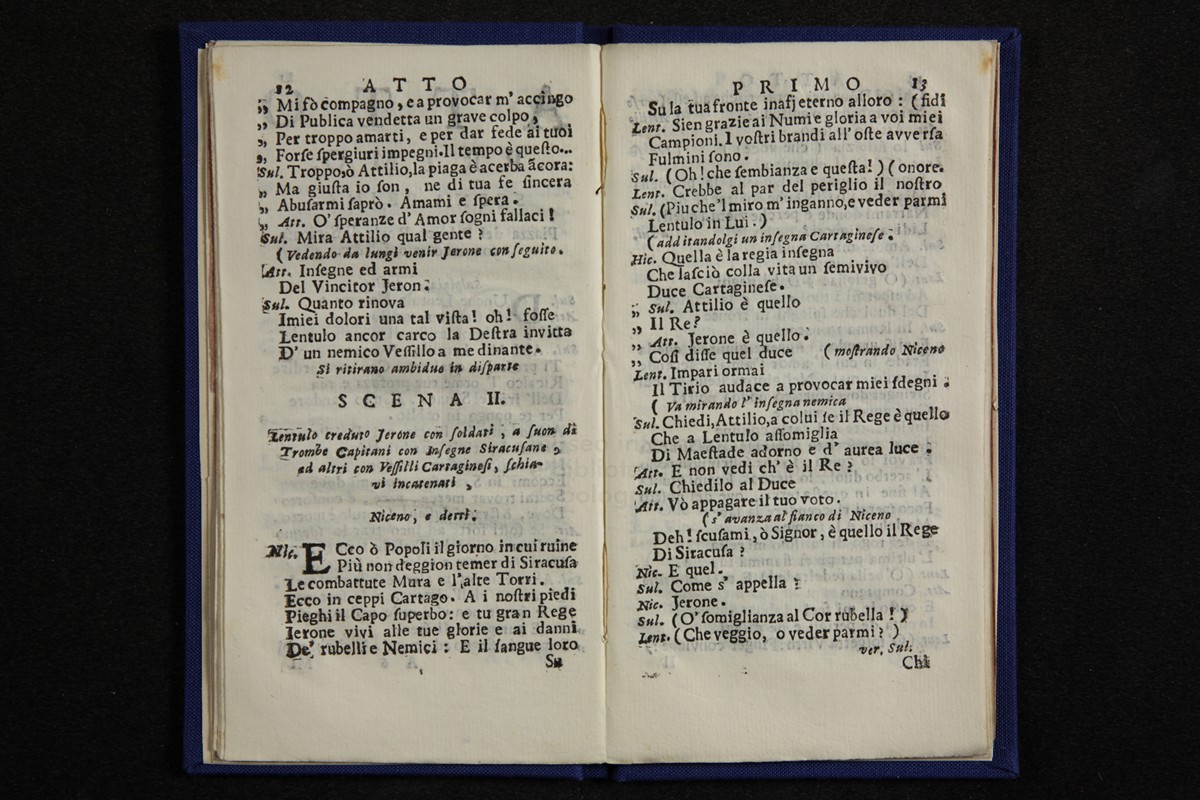 12 ATTO
„ Mi fò compagno, e a provocar m' accingo
„ Di Publica vendetta un grave colpo,
„ Per troppo amarti, e per dar fede ai tuoi
„ Forſe ſpergiuri impegni. Il tempo è queſto...
Sul. Troppo, ò Attilio, la piaga è acerba ãcora:
„ Ma giuſta io ſon, ne di tua fe ſincera
„ Abuſarmi ſaprò. Amami e ſpera.
„ Att. O' ſperanze d' Amor ſogni fallaci!
Sul. Mira Attilio qual gente?
(Vedendo da lungi venir Jerone con ſeguito.
Att. Inſegne ed armi
Del Vincitor Jeron.
Sul. Quanto rinova
I miei dolori una tal viſta! oh! foſſe
Lentulo ancor carco la Deſtra invitta
D' un nemico Veſſillo a me dinante.
Si ritirano ambiduo in diſparte
SCENA II.
Lentulo creduto Jerone con ſoldati, a ſuon di
Trombe Capitani con Inſegne Siracuſane,
ed altri con Veſſilli Cartagineſi, ſchia-
vi incatenati,
Niceno, e detti.
Nic. ECco ò Popoli il giorno in cui ruine
Più non deggion temer di Siracuſa
Le combattute Mura e l' alte Torri.
Ecco in ceppi Cartago. A i noſtri piedi
Pieghi il Capo ſuperbo: e tu gran Rege
Jerone vivi alle tue glorie e ai danni
De' rubelli e Nemici: E il ſangue loro
Su
PRIMO 13
Su la tua fronte inafj eterno alloro: (fidi
Lent. Sien grazie ai Numi e gloria a voi miei
Campioni. I voſtri brandi all' oſte avverſa
Fulmini ſono.
Sul. (Oh! che ſembianza e queſta!) (onore.
Lent. Crebbe al par del periglio il noſtro
Sul. (Piu che 'l miro m' inganno, e veder parmi
Lentulo in Lui.)
(additandolgi un inſegna Cartagineſe.
Nic. Quella è la regia inſegna
Che laſciò colla vita un ſemivivo
Duce Cartagineſe.
„ Sul. Attilio è quello
„ Il Re?
„ Att. Jerone è quello.
„ Coſi diſſe quel duce (moſtrando Niceno
Lent. Impari ormai
Il Tirio audace a provocar miei ſdegni.
( Va mirando l' inſegna nemica
Sul. Chiedi, Attilio, a colui ſe il Rege è quello
Che a Lentulo aſſomiglia
Di Maeſtade adorno e d' aurea luce.
Att. E non vedi ch' è il Re?
Sul. Chiedilo al Duce
Att. Vò appagare il tuo voto.
(s' avanza al fianco di Niceno
Deh! ſcuſami, ò Signor, è quello il Rege
Di Siracuſa?
Nic. E quel.
Sul. Come s' appella?
Nic. Jerone.
Sul. (O' ſomiglianza al Cor rubella!)
Lent. (Che veggio, o veder parmi?)
ver. Sul.
Chi